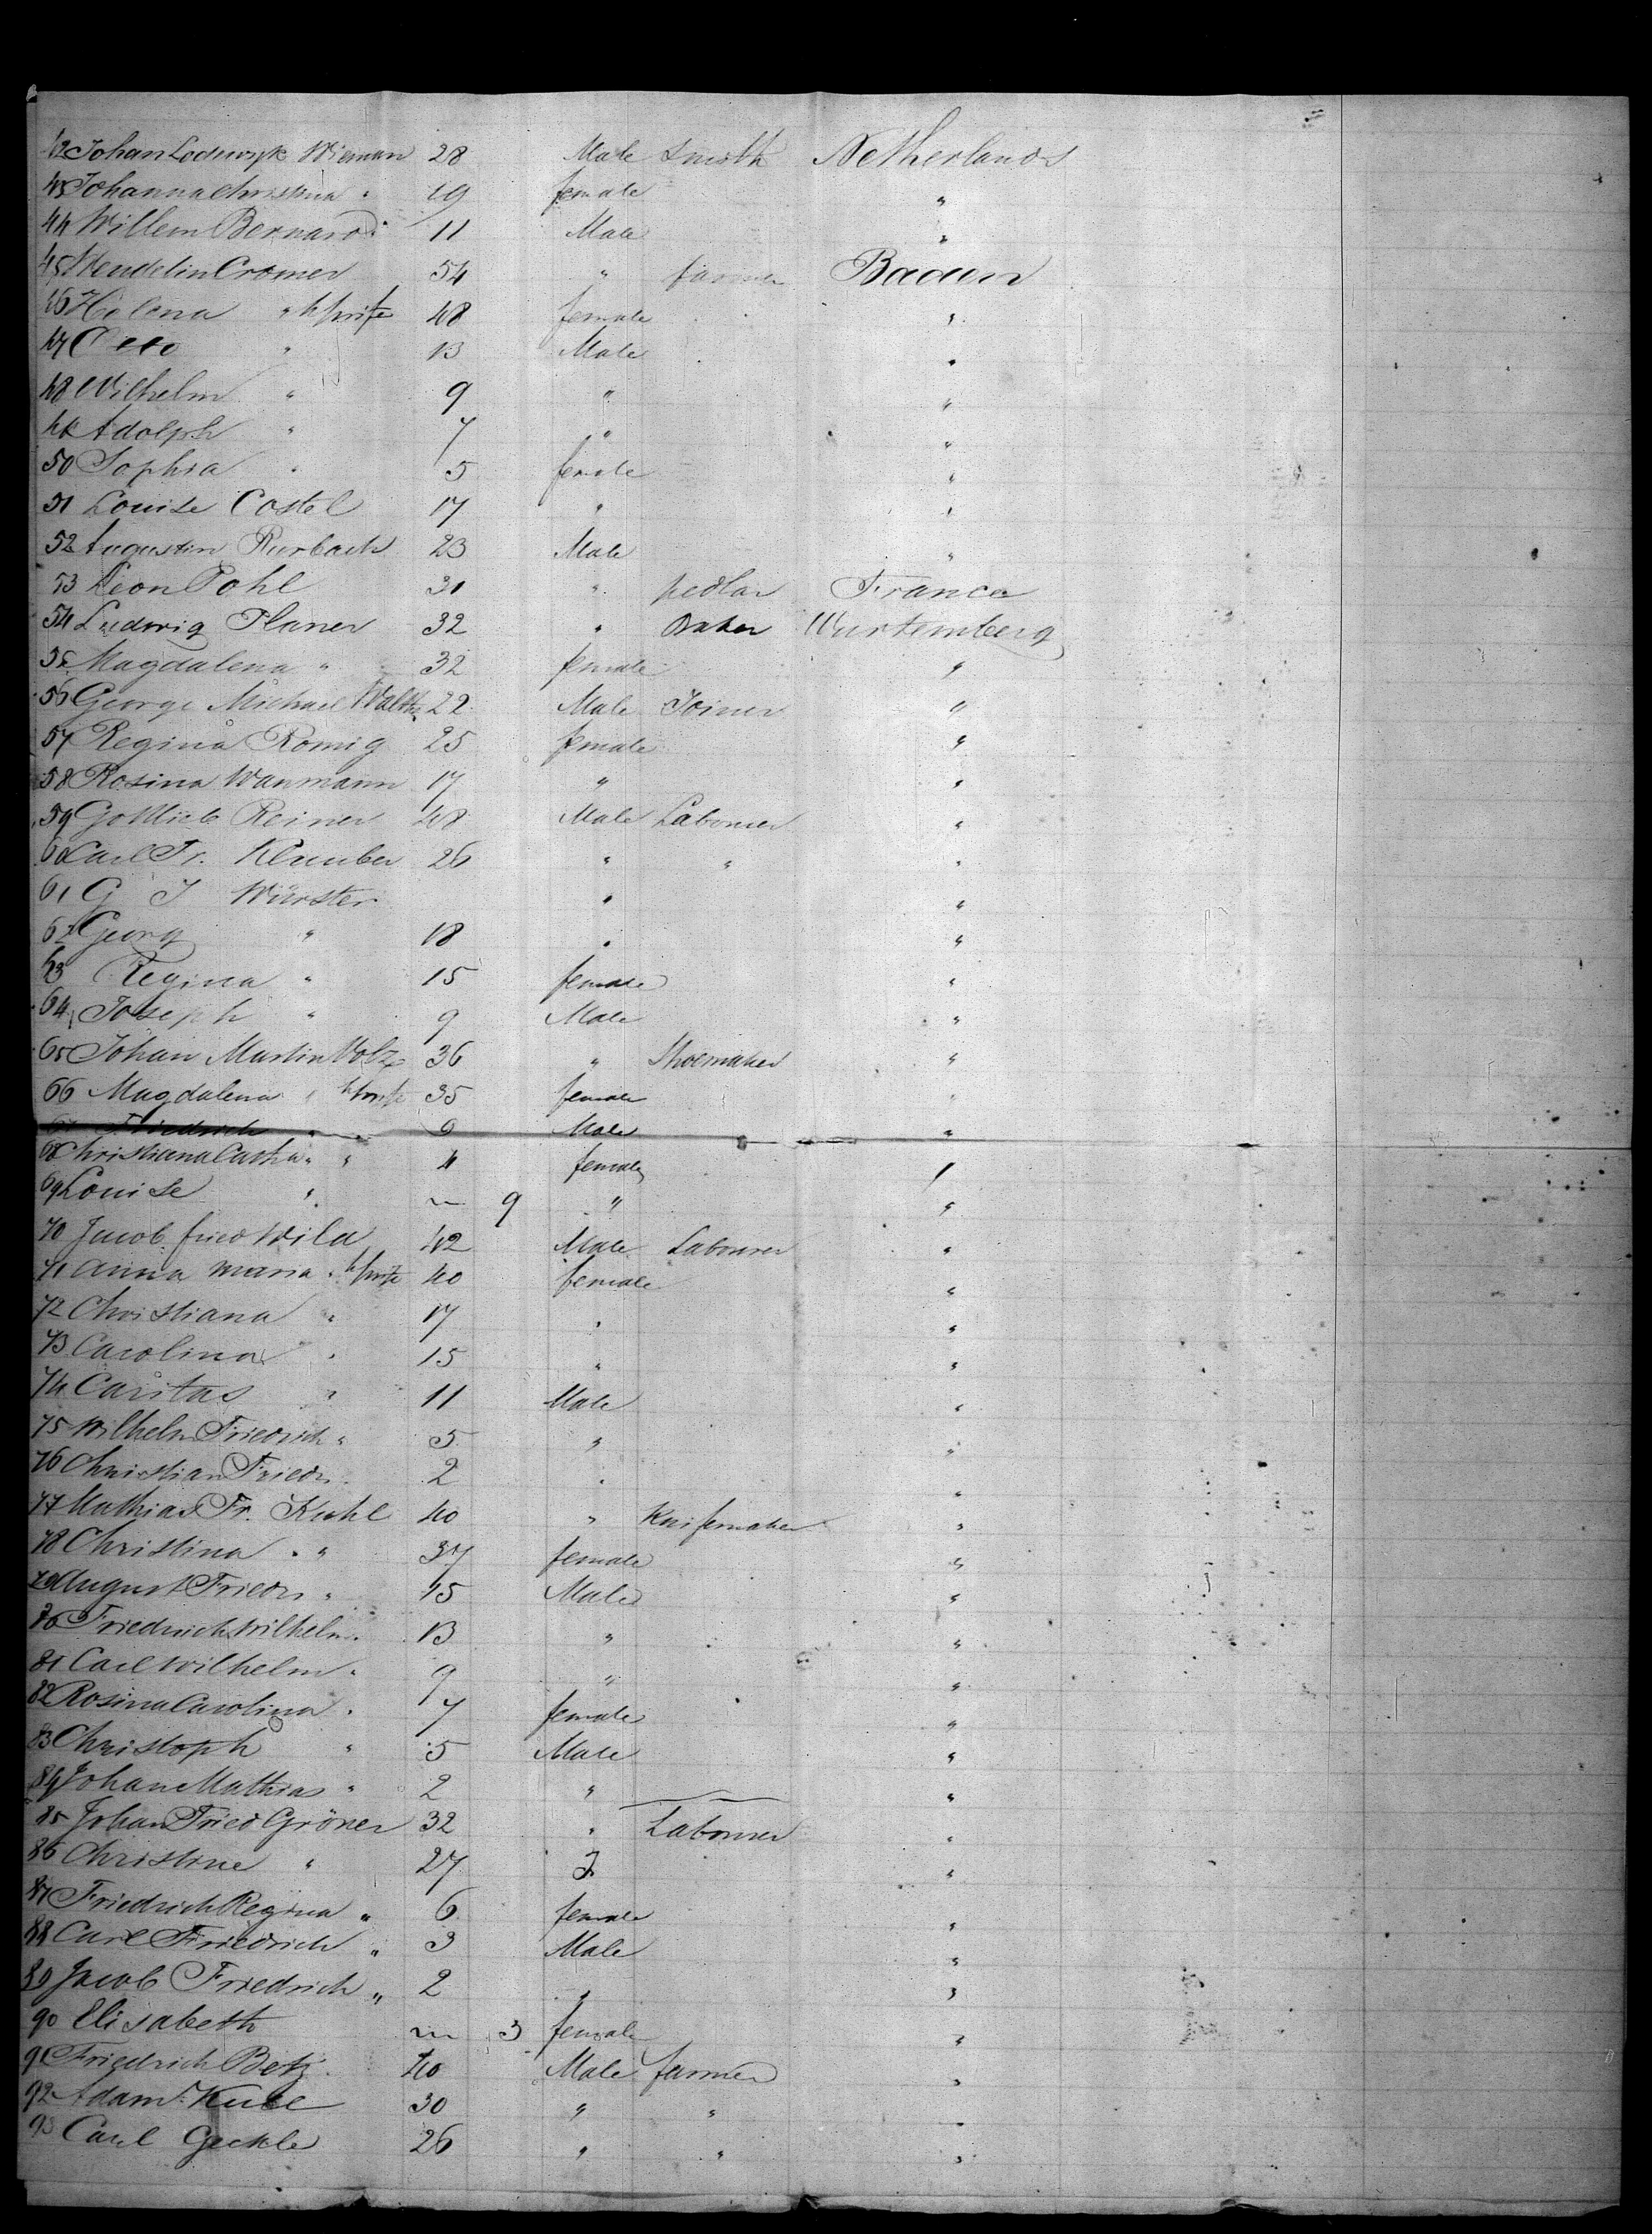 42 Johan Lodewyk Wieman 28 Male Smith Netherlands
43 Johanna Christina " 19 female "
44 Willem Bernard " 11 Male "
45 Wendelin Cromer 54 " farmer Baden
46 Helena " h/wife 48 female "
47 Otto " 13 Male "
48 Wilhelm " 9 " "
49 Adolph " 7 " "
50 Sophia " 5 female "
51 Louise Costel 17 " "
52 Augustin Rurbach 23 Male "
53 Leon Pohl 31 " pedlar France
54 Ludwig Planer 32 " Baker Wurtemberg
55 Magdalena " 32 female "
56 George Michael Walth 22 Male Joiner "
57 Regina Romig 25 female "
58 Rosina Wanmann 17 " "
59 Gottlieb Reiner 48 Male Labourer "
60 Carl Fr. Klumber 26 " " "
61 G J Würster " "
62 Georg " 18 " "
63 Regina " 15 female "
64 Joseph " 9 Male "
65 Johan Martin Volz 36 " Shoemaker "
66 Magdalena " h/wife 35 female "
67 Friedrich " 6 Male "
68 Christiana Catha " " 4 female "
69 Louise " 9 " "
70 Jacob fried Wild 42 Male Labourer "
71 Anna Maria " h/wife 40 female "
72 Christiana " 17 " "
73 Carolina " 15 " "
74 Caritas " 11 Male "
75 Wilhelm Friedrich " 5 " "
76 Christian Friedr. 2 " "
77 Mathias Fr. Kuhl 40 " Knifemaker "
78 Christina " " 37 female "
79 August Friedr " 15 Male "
80 Friedrich Wilhelm " 13 " "
81 Carl Wilhelm " 9 " "
82 Rosina Carolina " 7 female "
83 Christoph " 5 Male "
84 Johan Mathias " 2 " "
85 Johan Fried Gröner 32 " Labourer "
86 Christine " 27 f "
87 Friedrich Regina " 6 female "
88 Carl Friedrich " 3 Male "
89 Jacob Friedrich " 2 " "
90 Elisabeth 3 female "
91 Friedrich Betz 40 Male farmer "
92 Adam Kuhl 30 " " "
93 Carl Geckle 26 " " "